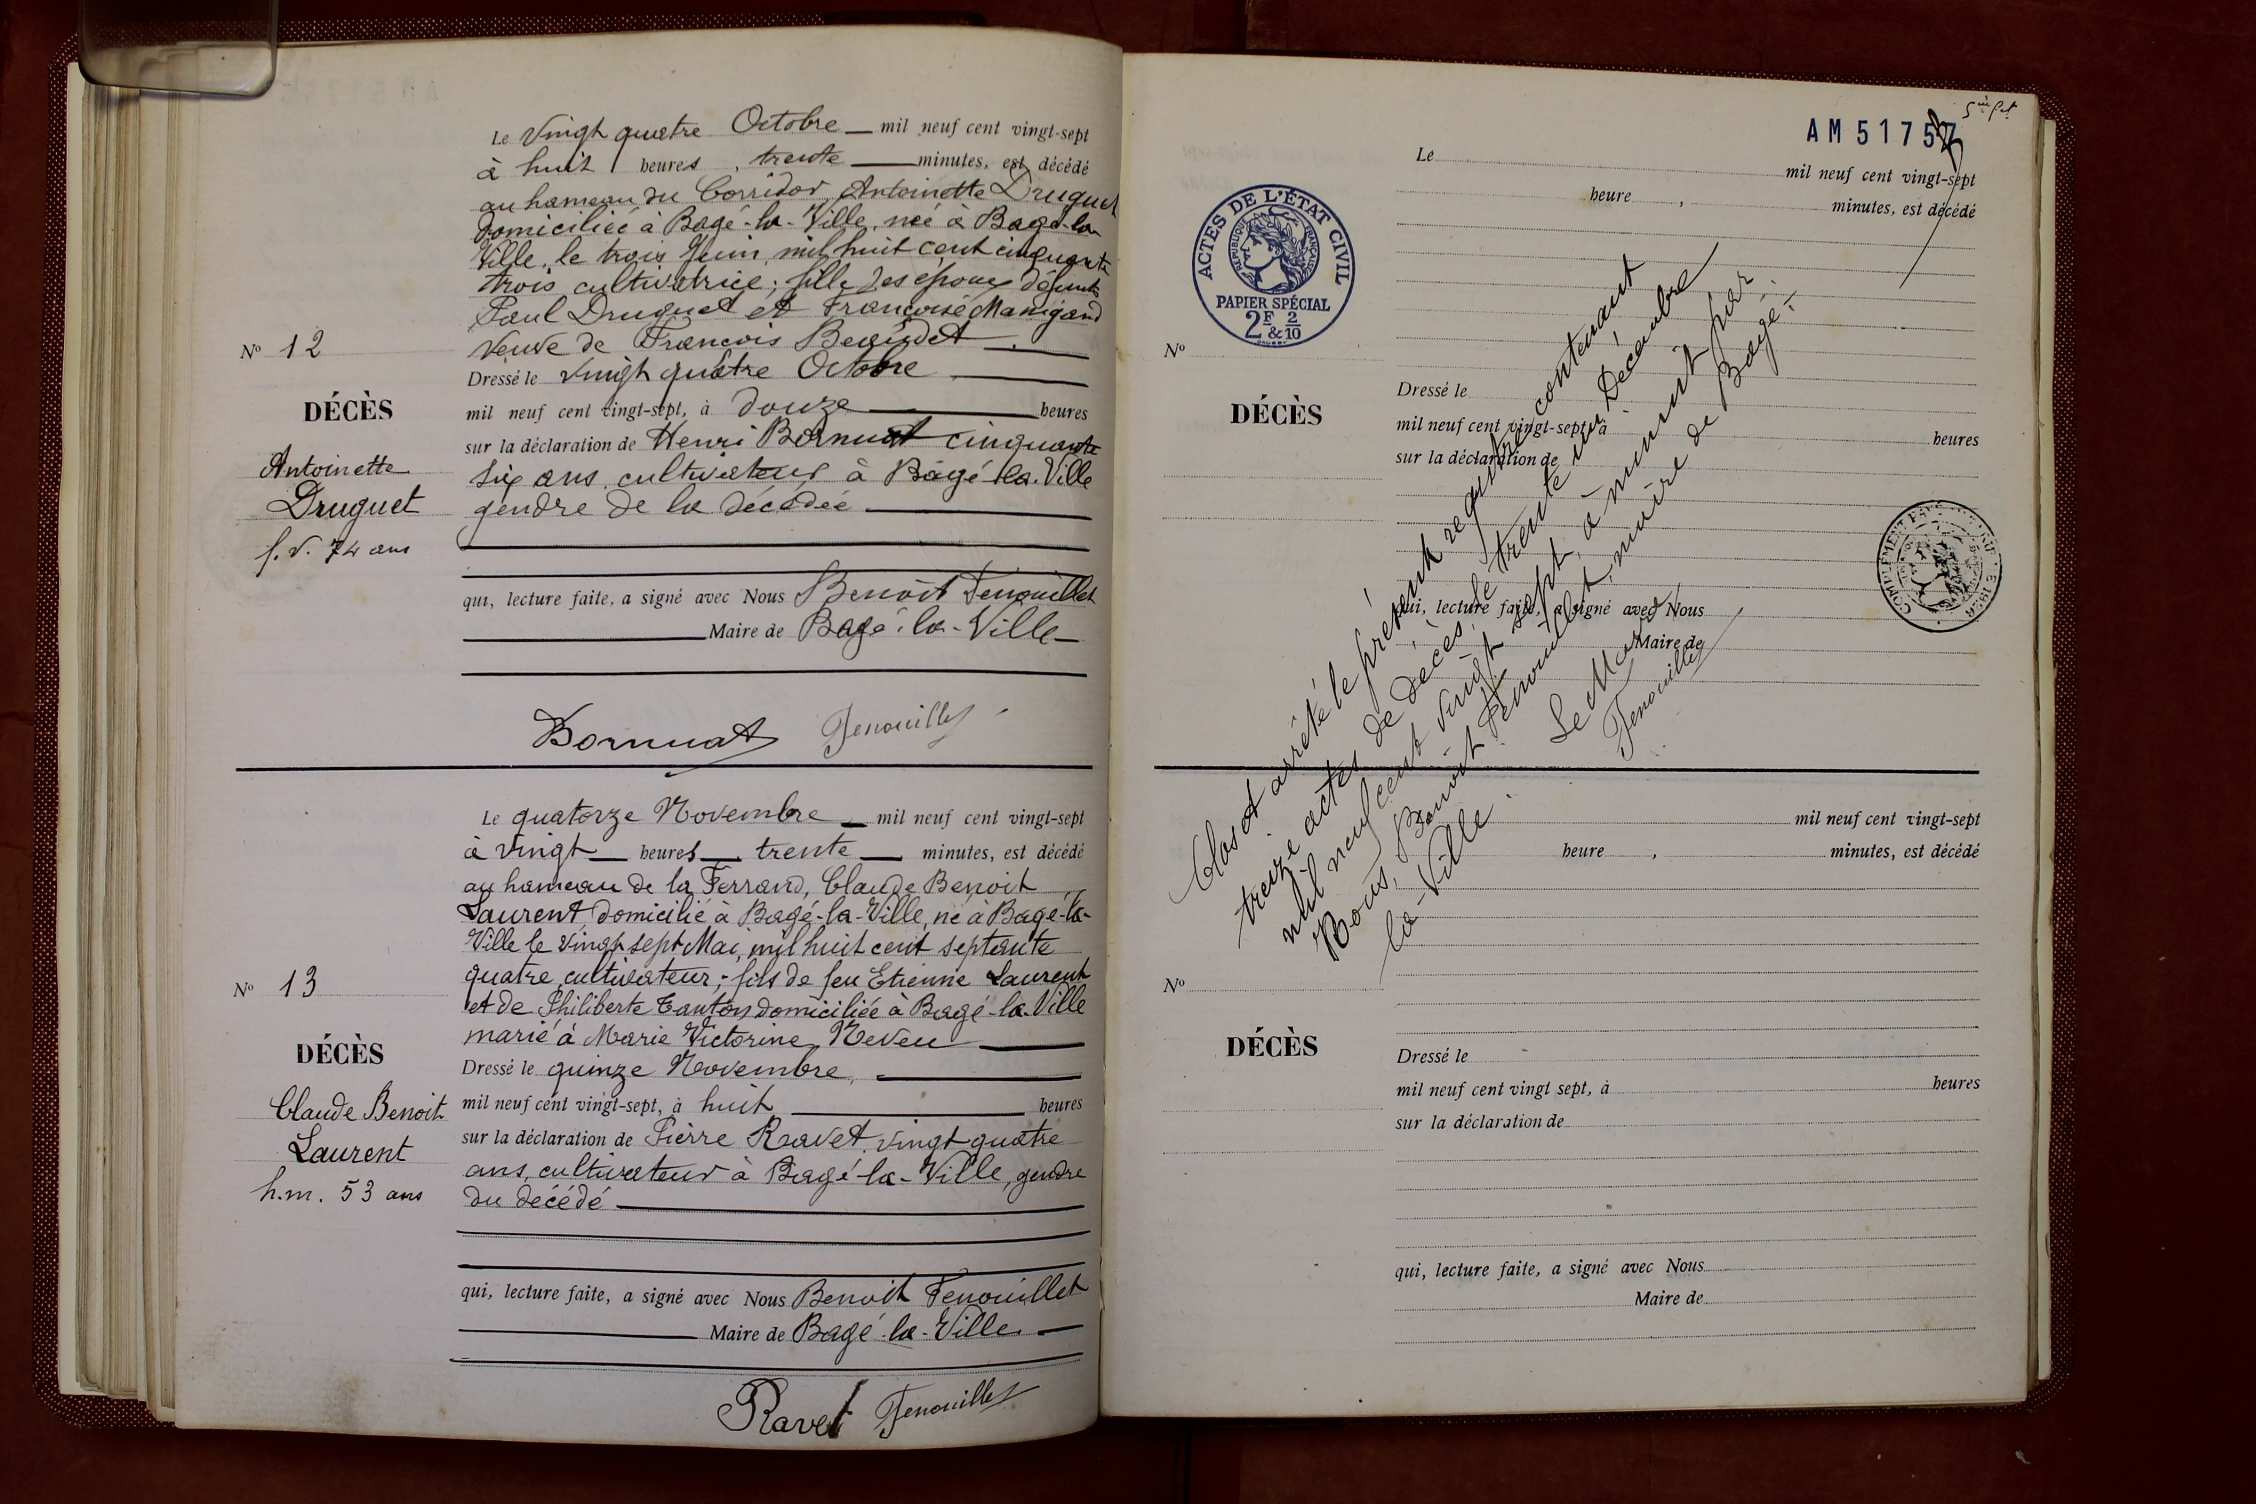 Le Vingt quatre Octobre mil neuf cent vingt-sept
à huit heures, trente minutes, est décédé
au hameau du Corridor Antoinette Druguet
domiciliée à Bagé-la-Ville, née à Bagé-la-
Ville, le trois Juin, mil huit cent cinquante
trois, cultivatrice; fille des époux défunts
Paul Druguet et Françoise Manigand
Veuve de François
Dressé le vingt quatre Octobre
mil neuf cent vingt-sept, à douze heures
sur la déclaration de Henri Bornuat cinquante
six ans, cultivateur à Bâgé-la-Ville
gendre de la décédée
qui, lecture faite, a signé avec Nous Benoît Fenouillet
Maire de Bagé-la-Ville
Bornuat Fenouillet
No 12
DÉCÈS
Antoinette
Druguet
f. v. 74 ans
Le quatorze Novembre mil neuf cent vingt-sept
à vingt heures, trente minutes, est décédé
au hameau de la Ferrand, Claude Benoit
Laurent, domicilié à Bagé-la-Ville, né à Bagé-la-
Ville le vingt sept Mai, mil huit cent septante
quatre, cultivateur; fils de feu Etienne Laurent
et de Philiberte domiciliée à Bagé-la-Ville
marié à Marie Victorine Neveu
Dressé le quinze Novembre,
mil neuf cent vingt-sept, à huit heures
sur la déclaration de Pierre Ravet, vingt quatre
ans, cultivateur à Bagé-la-Ville, gendre
du décédé
qui, lecture faite, a signé avec Nous Benoit Fenouillet
Maire de Bagé-la-Ville
Ravet Fenouillet
No 13
DÉCÈS
Claude Benoit
Laurent
h. m. 53 ans
AM 5175
ACTES DE L'ÉTAT CIVIL
RÉPUBLIQUE FRANÇAISE
PAPIER SPÉCIAL
2F & 2/10
Le
mil neuf cent vingt-sept
heure , minutes, est décédé
No
DÉCÈS
Dressé le
mil neuf cent vingt-sept, à heures
sur la déclaration de
qui, lecture faite, a signé avec Nous
Maire de
Clos et arrêté le présent registre contenant
treize actes de décès, le trente un Décembre
mil neuf cent vingt sept, à minuit par
Nous, Benoit Fenouillet, maire de Bagé-
la-Ville.
Le Maire
Fenouillet
mil neuf cent vingt-sept
heure , minutes, est décédé
No
DÉCÈS
Dressé le
mil neuf cent vingt sept, à heures
sur la déclaration de
qui, lecture faite, a signé avec Nous
Maire de